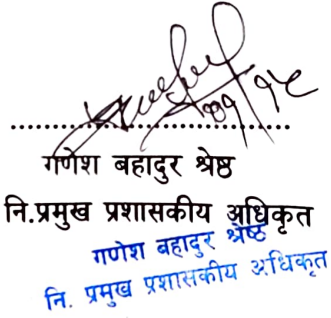 गणेश बहादुर श्रेष्ठ
नि.प्रमुख प्रशासकीय अधिकृत
गणेश बहादुर श्रेष्ठ
नि. प्रमुख प्रशासकीय अधिकृत